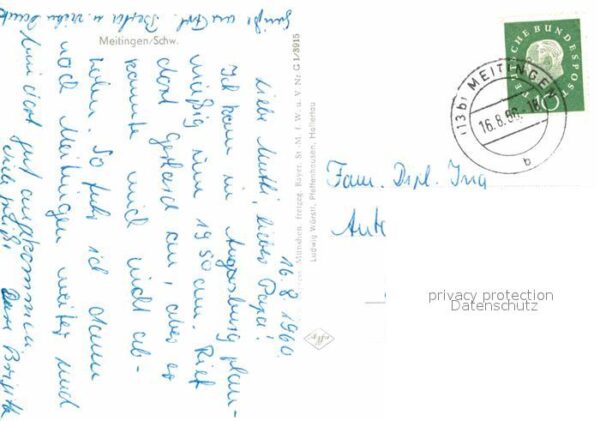 Meitingen/Schw.
16.8.1960.
Liebe Mutti, lieber Papa!
Ich kam in Augsburg plan-
mäßig um 19.50 an. Rief
dort Gerhard an, aber er
konnte mich nicht ab-
holen. So fuhr ich dann
nach Meitingen weiter und
bin dort gut angekommen
Viele Grüße Eure Brigitte
München freigeg. Bayer. St. M. f. W. u. V Nr G 1/3915
Ludwig Würstl, Pfeffenhausen, Hallertau
DEUTSCHE BUNDESPOST
10
(13b) MEITINGEN
16.8.60.-18
b
Fam. Dipl. Ing
privacy protection
Datenschutz